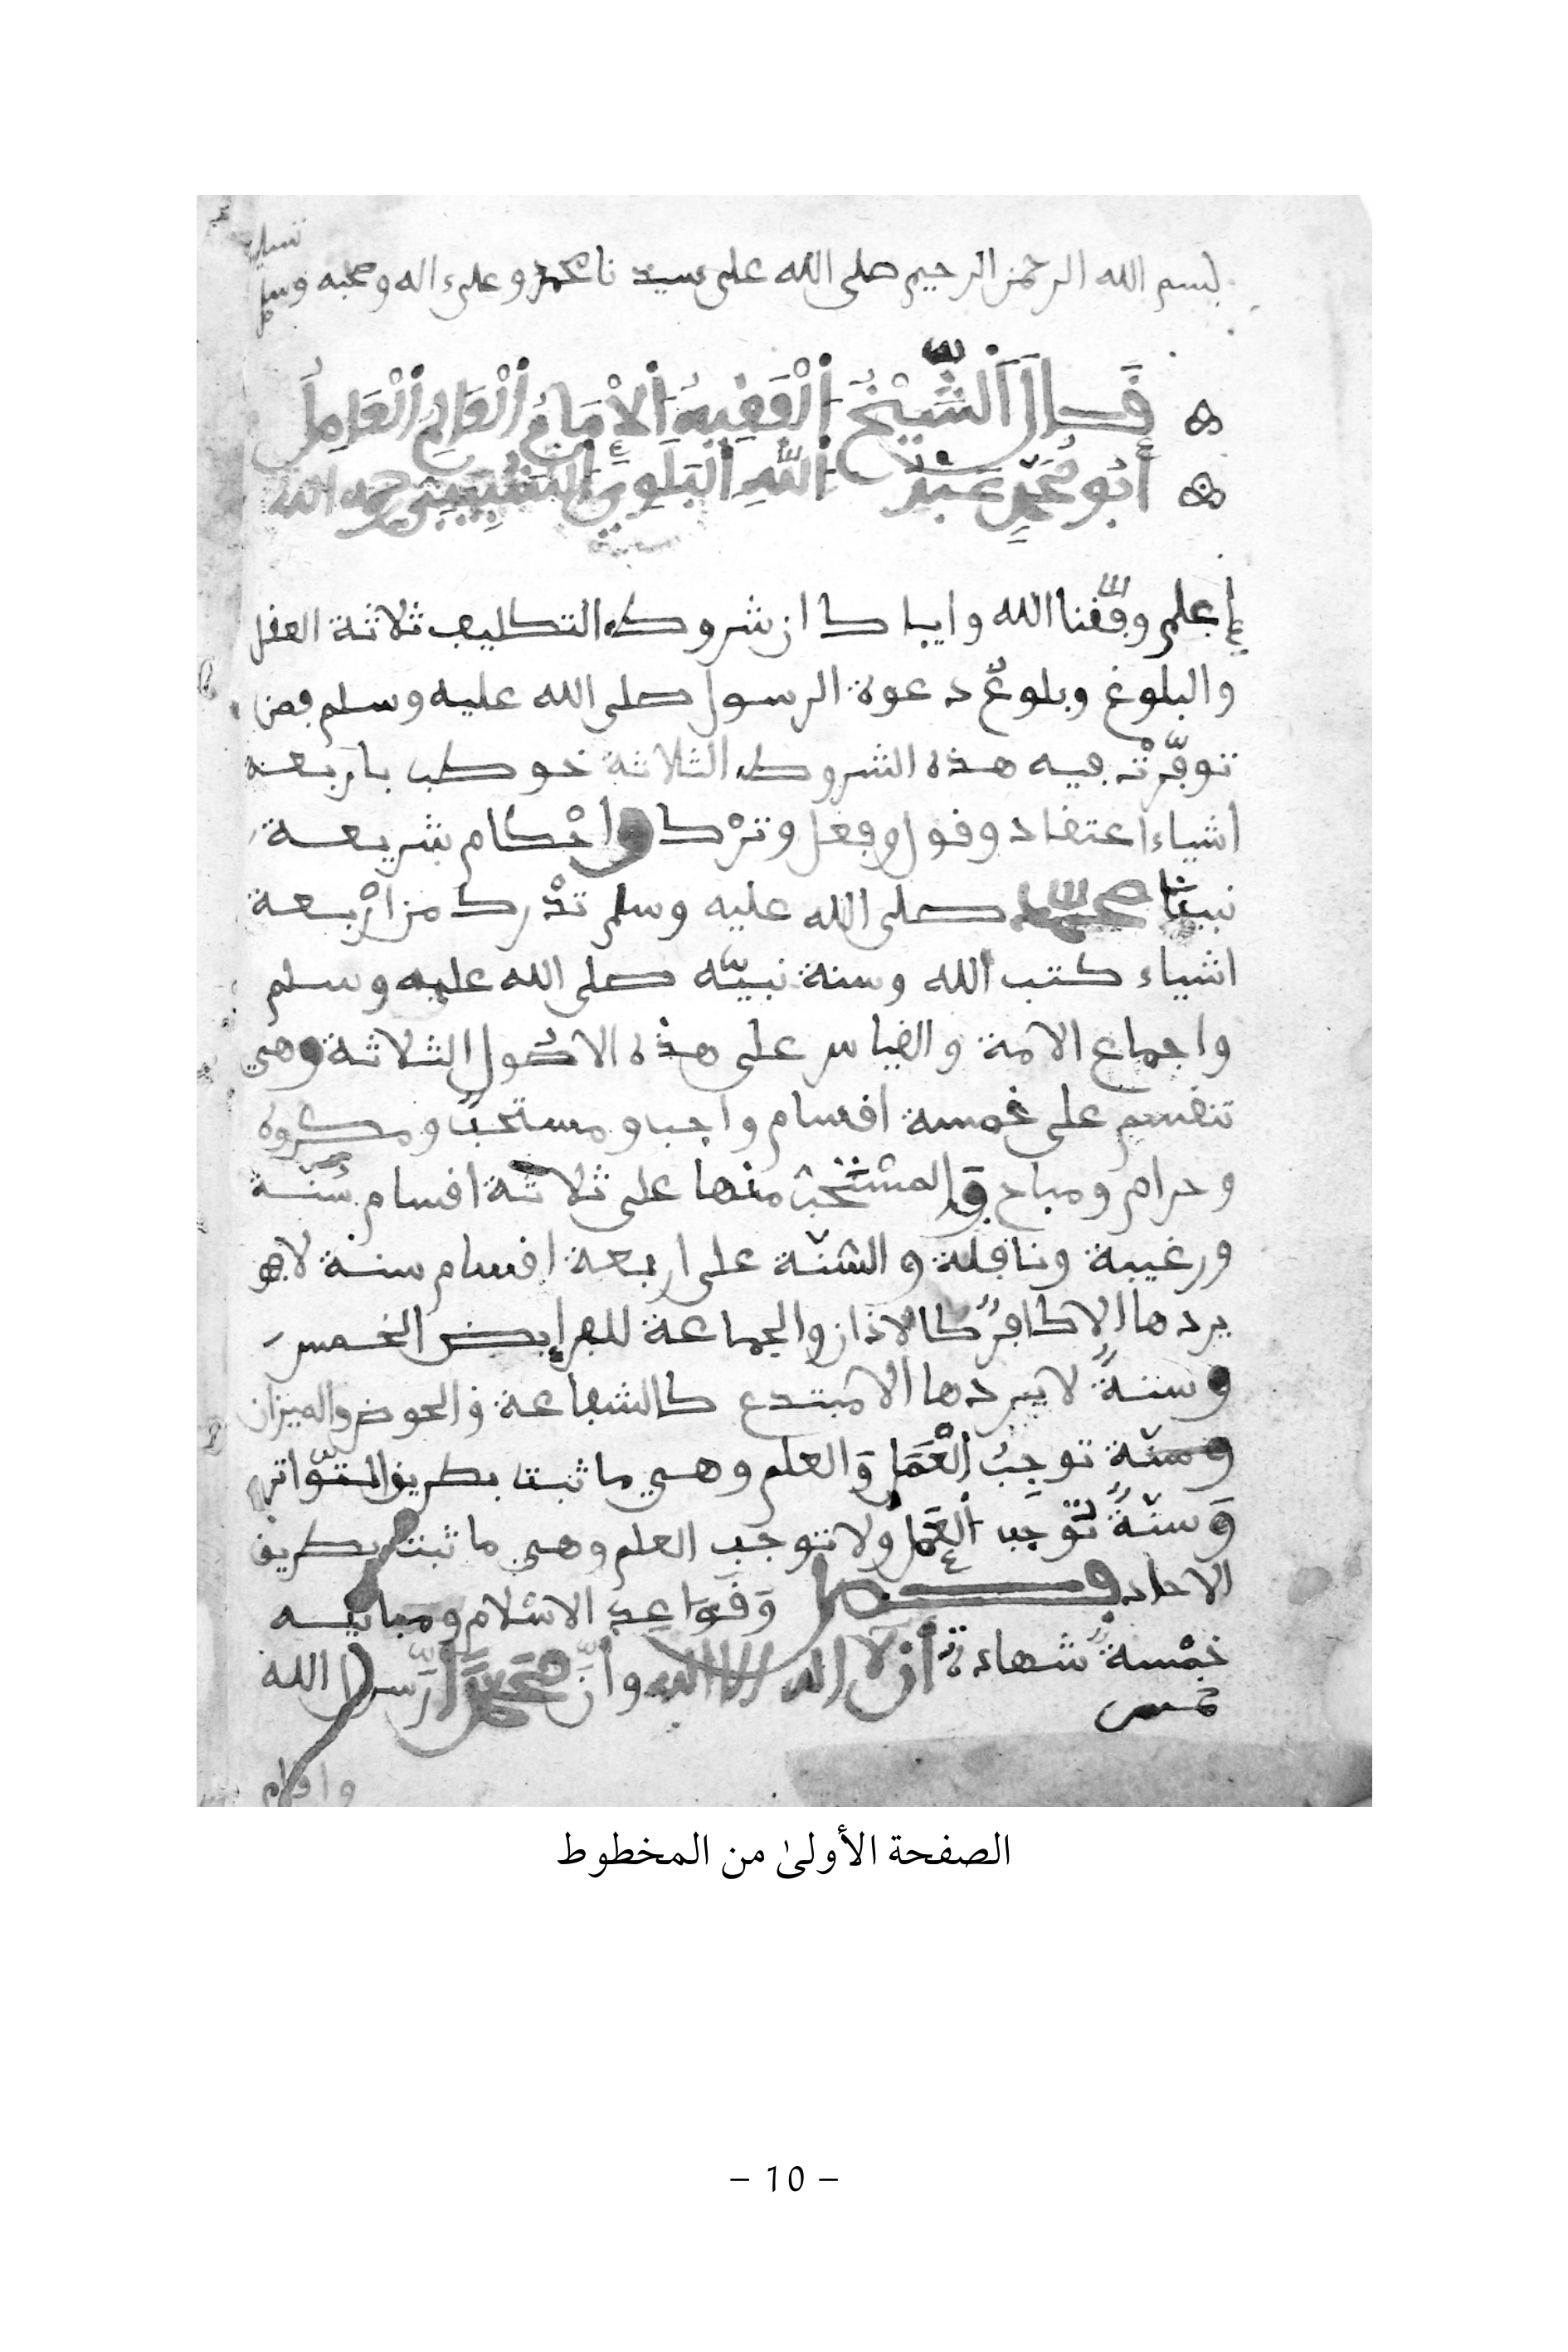 بسم الله الرحمن الرحيم صلى الله على سيدنا محمد وعلى اله وصحبه وسلم
تسليما
قَالَ اَلشَّيْخُ اَلْفَقِيهُ اَلْإِمَامُ اَلْعَالِمُ اَلْعَامِلُ
أَبُو مُحَمَّدٍ عَبْدُ اَللَّهِ اَلْبَلَوِيُّ اَلشَّبِيبِيُّ رحمه الله
إعلم وفّقنا الله واياك ان شروط التكليف ثلاثة العقل
والبلوغ وبلوغ دعوة الرسول صلى الله عليه وسلم فمن
توفّرتْ فيه هذه الشروط الثلاثة خوطب باربعة
اشياء اعتقاد وقول وفعل وترْك واحْكام شريعة
نبينا محمد صلى الله عليه وسلم تدْرك من ارْبعة
اشياء كتب الله وسنة نبيّه صلى الله عليه وسلم
واجماع الامة والقياس على هذه الاصُول الثلاثة وهي
تنقسم على خمسة اقسام واجب ومستحبّ ومكروه
وحرام ومباح والمسْتحبّ منها على ثلاثة اقسام سُنة
ورغيبة ونافلة والسّنّة على اربعة اقسام سنة لا
يردها الا كافرٌ كالاذان والجماعة للفرايض الخمس
وسنةٌ لا يردها الا مبتدع كالشفاعة والحوض والميزان
وسنّة توجِبُ الْعَمَل وَالعلم وهي ما ثبت بطريق التّواتر
وَسنّةٌ تُوجِب العَمل ولا توجب العلم وهي ما ثبت بطريق
الاحاد فصل وَقَوَاعِدِ الاسْلام ومبانيه
خمْسةٌ شهادة أن لا إله الا الله وأنّ مُحَمَّدًا رّسول الله
خمس
واقام
الصفحة الأولىٰ من المخطوط
– 10 –